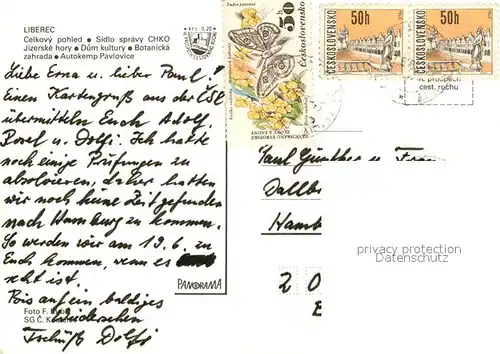 LIBEREC
Celkový pohled • Sídlo správy CHKO
Jizerské hory • Dům kultury • Botanická
zahrada • Autokemp Pavlovice
Liebe Erna u. lieber Paul!
Einen Kartengruß aus der ČSL
übermitteln Euch Adolf,
u. Dolfi. Ich hatte
noch einige Prüfungen zu
absolvieren, daher hatten
wir noch keine Zeit gefunden
nach Hamburg zu kommen.
So werden wir am 19.6. zu
Euch kommen, wenn es
recht ist.
Bis auf ein baldiges
Wiedersehen
Tschüß Dolfi
Foto F.
SG Č.
PANORAMA
50h
ČESKOSLOVENSKO
50h
ČESKOSLOVENSKO
50h
Československo
cest. ruchu
Paul Günther u. Frau
Hamb
privacy protection
www.ansichtskarten-center.de
20